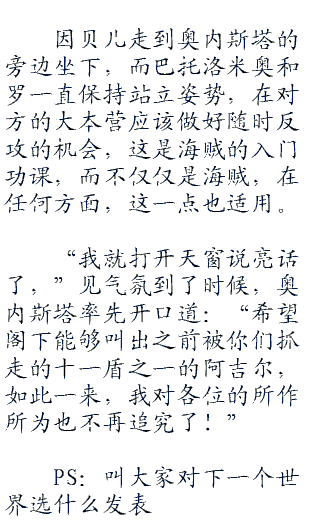 因贝儿走到奥内斯塔的
旁边坐下，而巴托洛米奥和
罗一直保持站立姿势，在对
方的大本营应该做好随时反
攻的机会，这是海贼的入门
功课，而不仅仅是海贼，在
任何方面，这一点也适用。
“我就打开天窗说亮话
了，”见气氛到了时候，奥
内斯塔率先开口道：“希望
阁下能够叫出之前被你们抓
走的十一盾之一的阿吉尔，
如此一来，我对各位的所作
所为也不再追究了！”
PS：叫大家对下一个世
界选什么发表